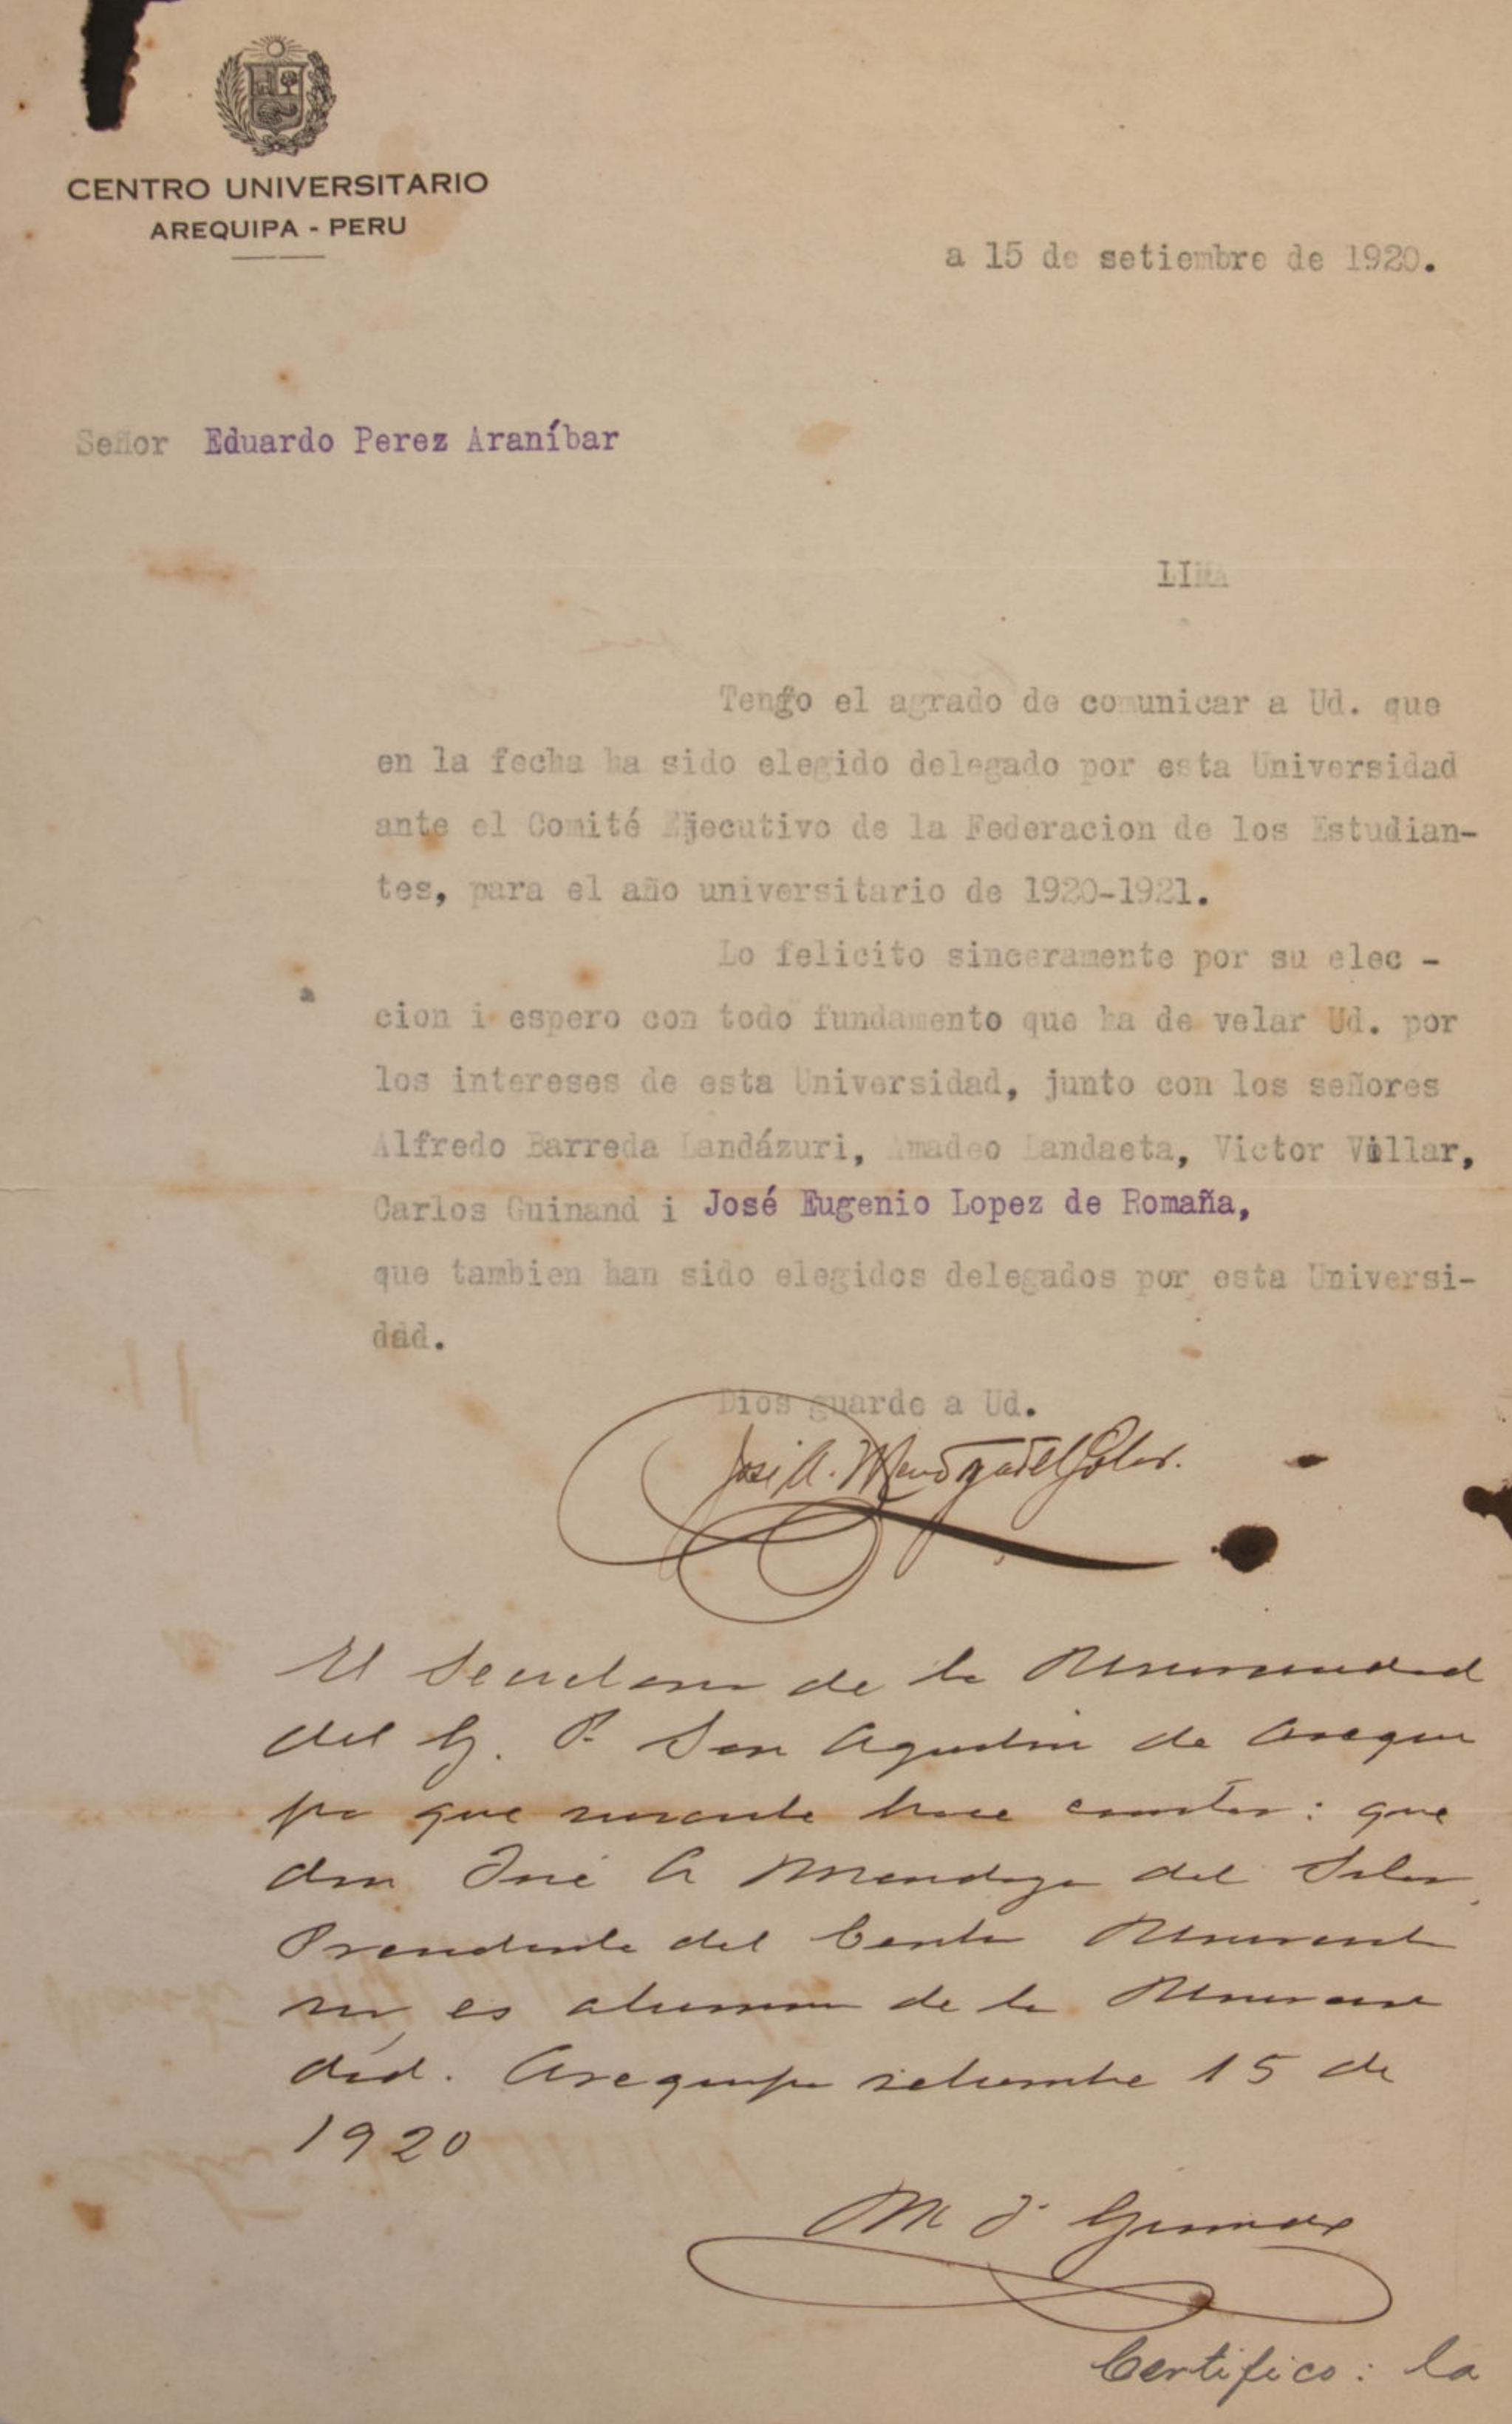 CENTRO UNIVERSITARIO
AREQUIPA - PERU
a 15 de setiembre de 1920.
Señor Eduardo Perez Araníbar
LIMA
Tengo el agrado de comunicar a Ud. que
en la fecha ha sido elegido delegado por esta Universidad
ante el Comité Ejecutivo de la Federacion de los Estudian-
tes, para el año universitario de 1920-1921.
Lo felicito sinceramente por su elec -
cion i espero con todo fundamento que ha de velar Ud. por
los intereses de esta Universidad, junto con los señores
Alfredo Barreda Landázuri, Amadeo Landaeta, Victor Villar,
Carlos Guinand i José Eugenio Lopez de Romaña,
que tambien han sido elegidos delegados por esta Universi-
dad.
Dios guarde a Ud.
José A. Mendoza del Solar.
El Secretario de la Universidad
del G. P. San Agustin de Arequi
pa que suscribe hace constar: que
don José A Mendoza del Solar
Presidente del Centro Universita
rio, es alumno de la Universi
dad. Arequipa setiembre 15 de
1920
Certifico: la